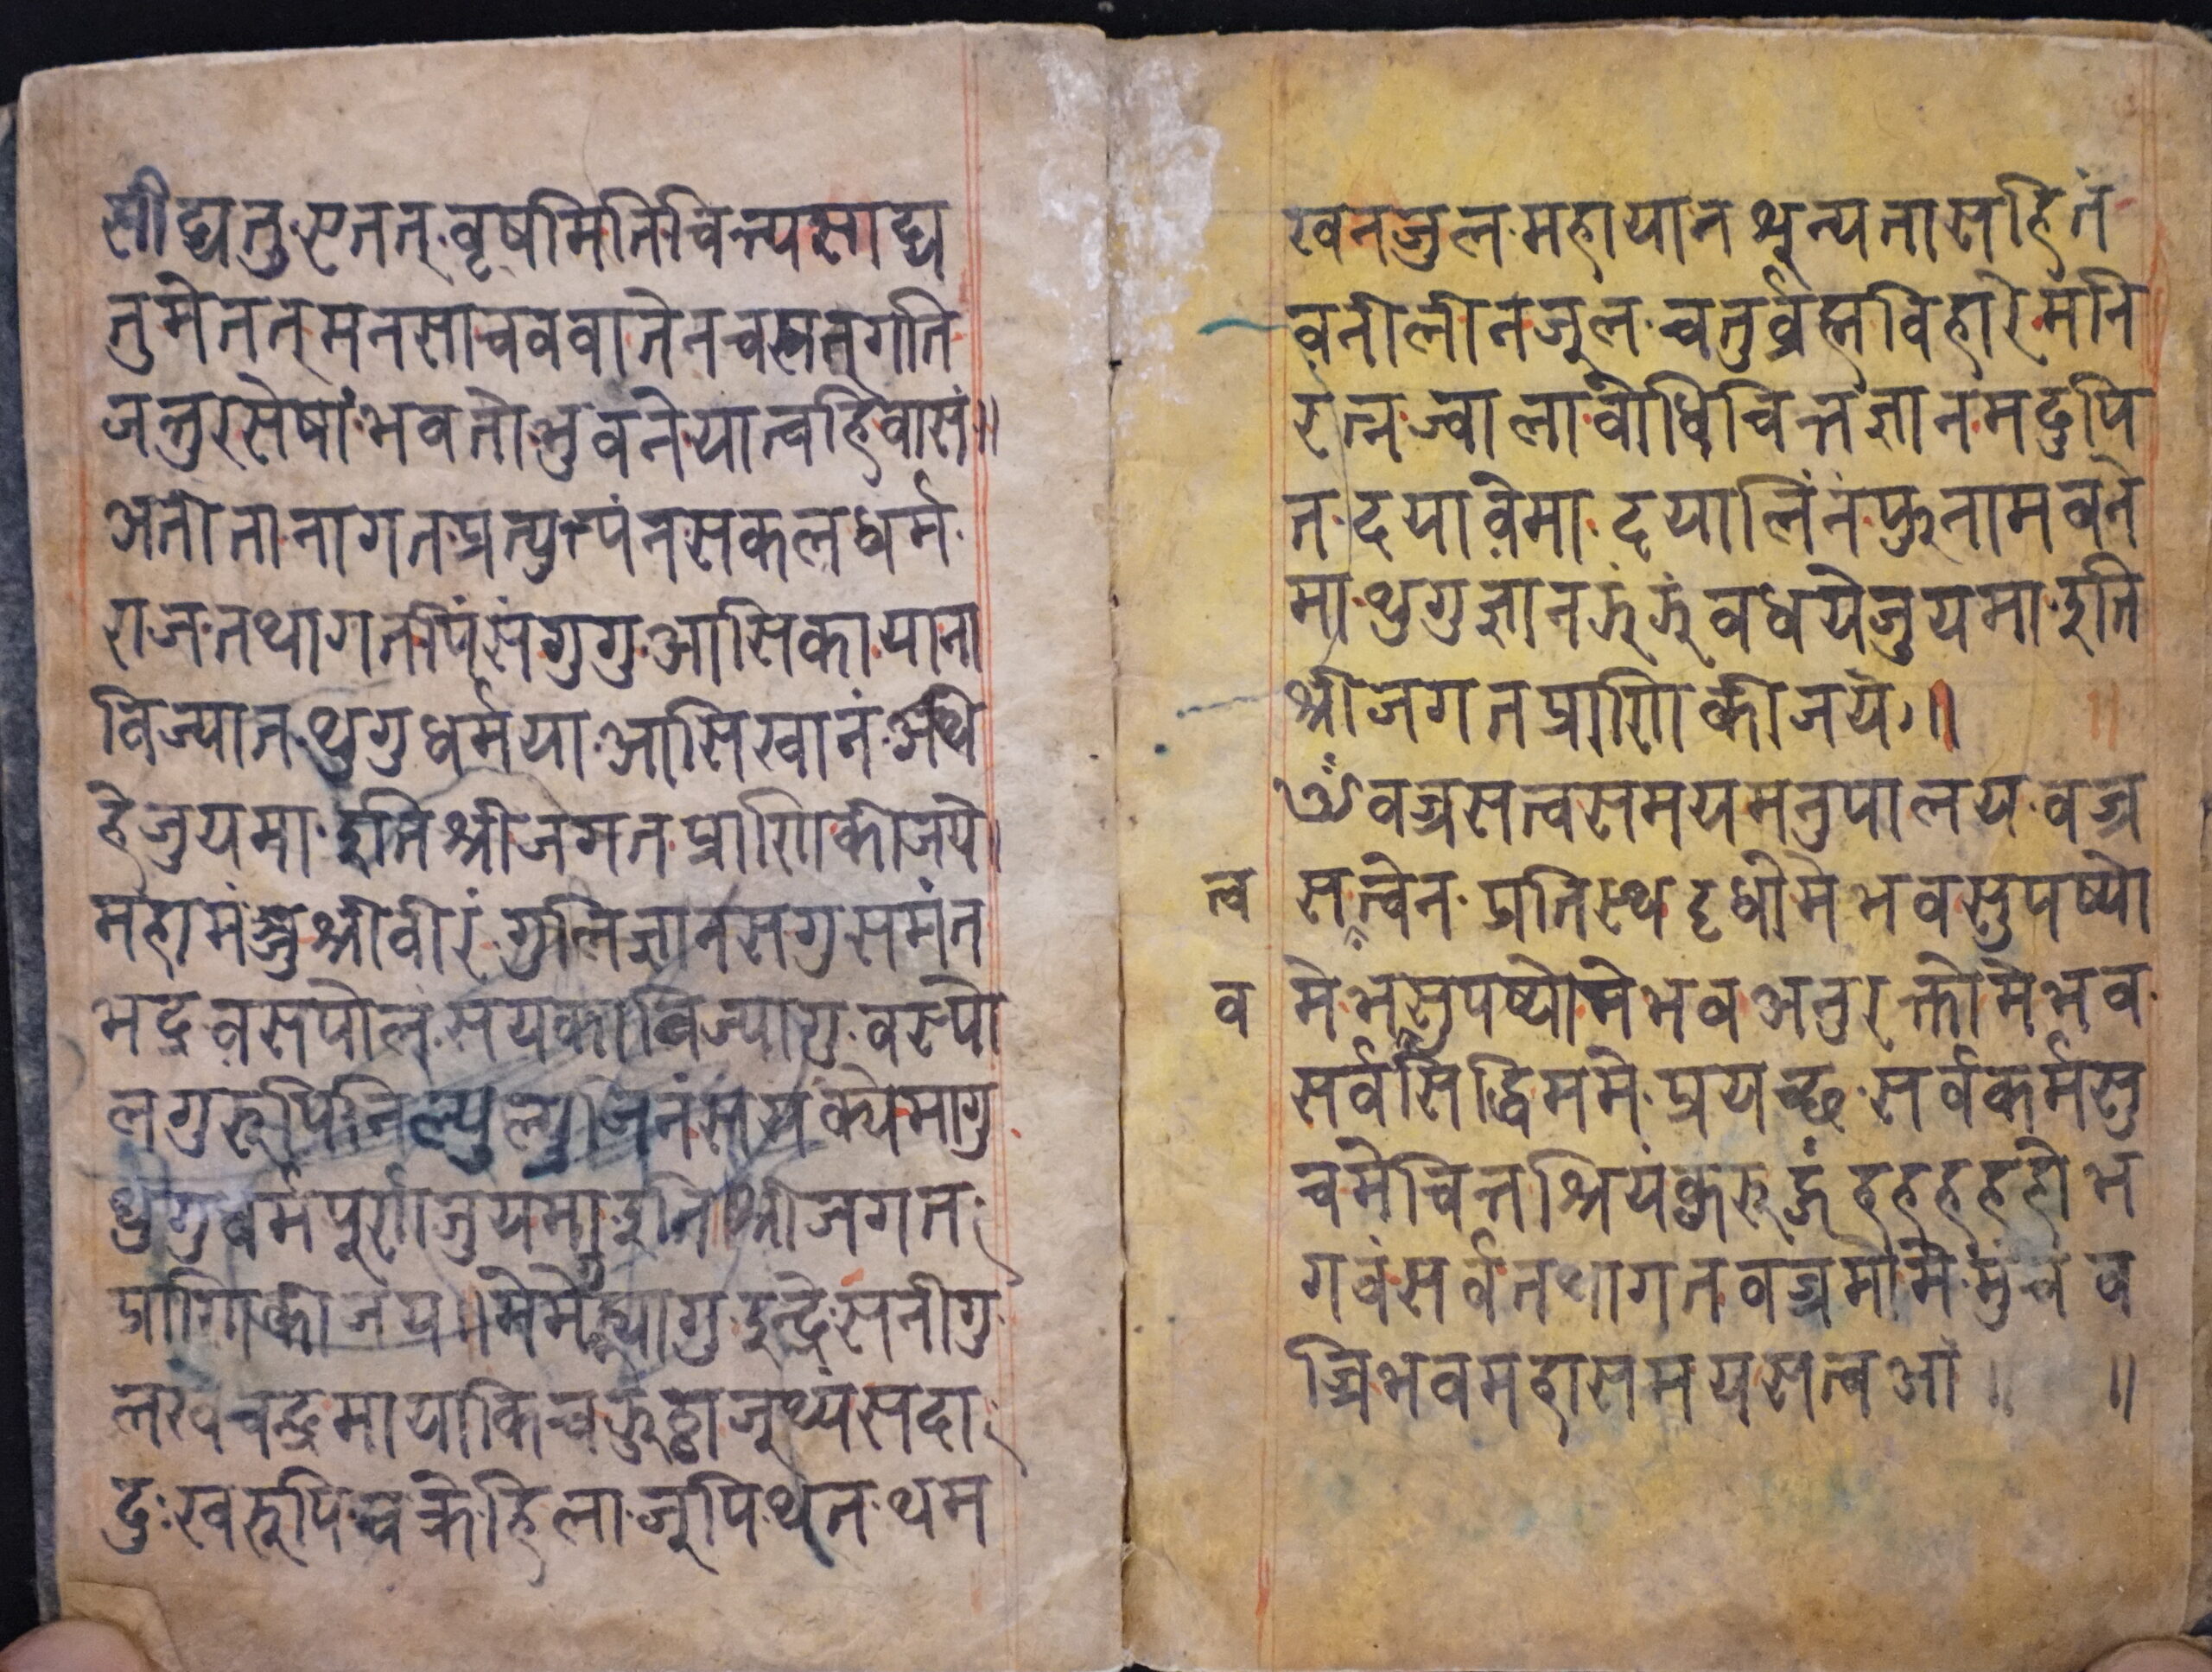 द्यतु एतत् वृषमिति चिन्त्य साद्य
तुमेतत् मनसा चववातेन च
जन्तुरसेषां भवतो भुवने यात्वहिवासं॥
अतीतानागत प्रत्युत्पंन सकल धर्म
राज तथागतपिंसं गुगु आसिकायाना
विज्यात थुगु धर्मया आसिखानं अथे
हे जुयमा इति श्री जगत प्राणि की जये।
महामंजुश्री वीरं गुलि ज्ञान सगु समंत
भद्र वसपोल सयका विज्यागु वस्पो
लगुरुपिनि ल्यु ल्यु जिनं सयंक्येमागु
थुगु धर्म पूर्ण जुयमा इति श्री जगत
प्राणि की जय॥ मेमेह्यागु इन्द्रे सनीगु
लख चन्द्रमाया किच्च जूथ्यं सदा
दुःखरुपि चक्रे हिला जूपि थन थम
खन जुल महायान शून्यता सहितं
वनीलीन जूल चतुर्व्रह्मविहारे मनि
रत्न ज्वाला वोधिचित्त ज्ञानं मदुपि
त दया वेमा दयालिनं फुनामवने
मा थुगु ज्ञान झं झं वधये जुयमा इति
श्री जगत प्राणि की जये॥ ॥
ॐ वज्रसत्वसमयमनुपालय वज्र
त्व सत्वेन प्रतिस्थ दृधोमे भव सुपष्यो
व मे भसुपष्योमे भव अनुरक्तोमे भव
सर्वसिद्धिममे प्रयच्छ सर्वकर्मसु
चमे चित्तश्रियंकुरु हूं हहहहहो भ
गवं सर्वतथागत वज्रमोमे मुंच व
ज्रिभव महासमयसत्व आ ॥ ॥